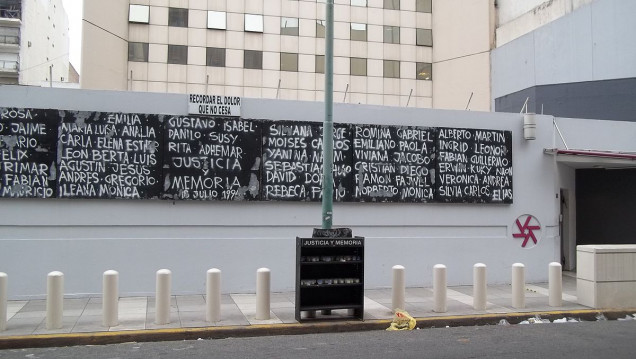 RECORDAR EL DOLOR
QUE NO CESA
ROSA
JAIME
FELIX
FABIAN
MAURICIO
EMILIA
MARIA LUISA ANALIA
CARLA ELENA ESTH
LEON BERTA LUIS
AGUSTIN JESUS
ANDRES GREGORIO
ILEANA MONICA
GUSTAVO ISABEL
DANILO SUSY
RITA ADHEMAR
JUSTICIA
Y
MEMORIA
18 JULIO 1994
SILVANA JORGE
MOISES CARLOS
YANINA
DAVID
REBECA
ROMINA GABRIEL
EMILIANO PAOLA
VIVIANA JACOBO
CRISTIAN DIEGO
RAMON FAJWEL
NORBERTO MONICA
ALBERTO MARTIN
INGRID LEONOR
FABIAN GUILLERMO
ERWIN KUKY NAON
VERONICA ANDREA
SILVIA CARLOS ELIAS
JUSTICIA Y MEMORIA